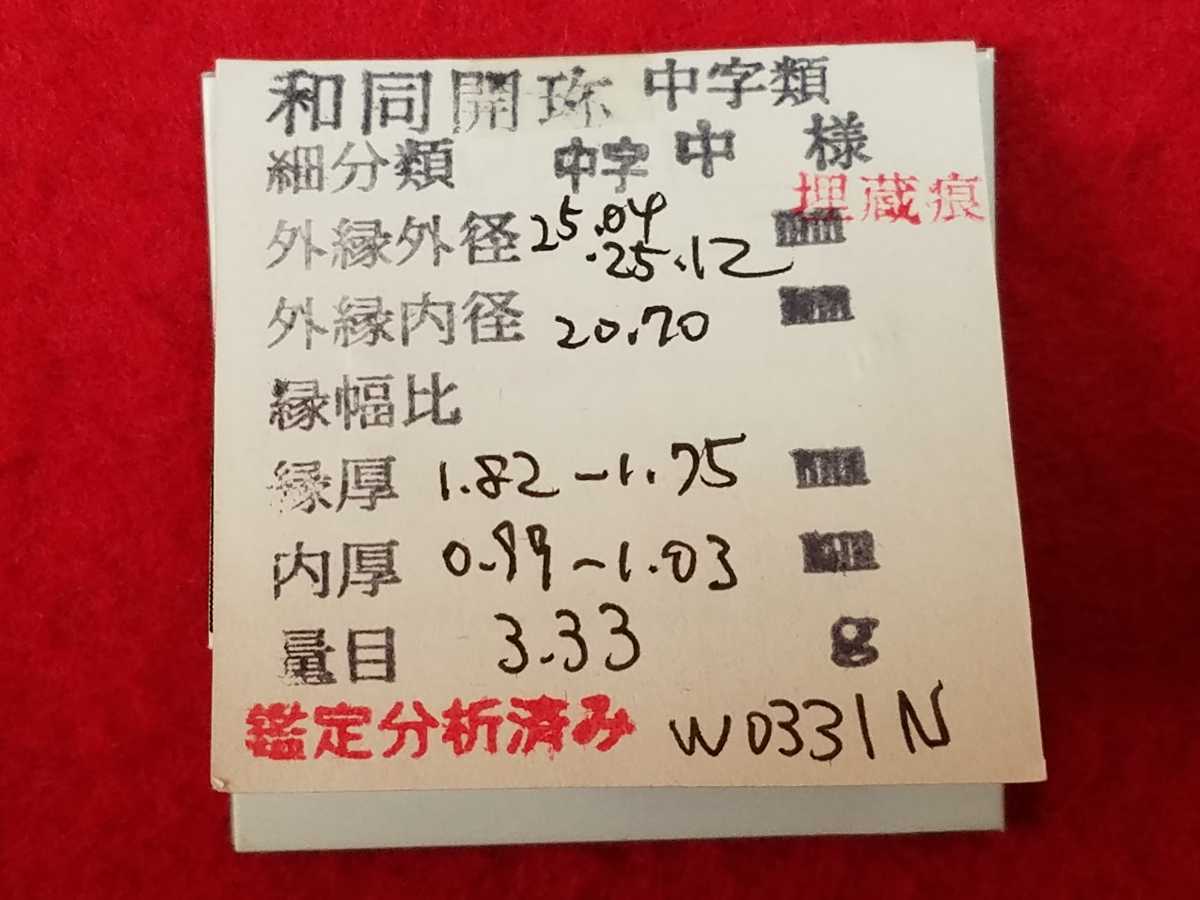 和同開珎 中字類
細分類 中字 中 様
埋蔵痕
外縁外径 25.04 mm
.25.12
外縁内径 20.70 mm
縁幅比
縁厚 1.82-1.75 mm
内厚 0.99-1.03 mm
量目 3.33 g
鑑定分析済み W0331N